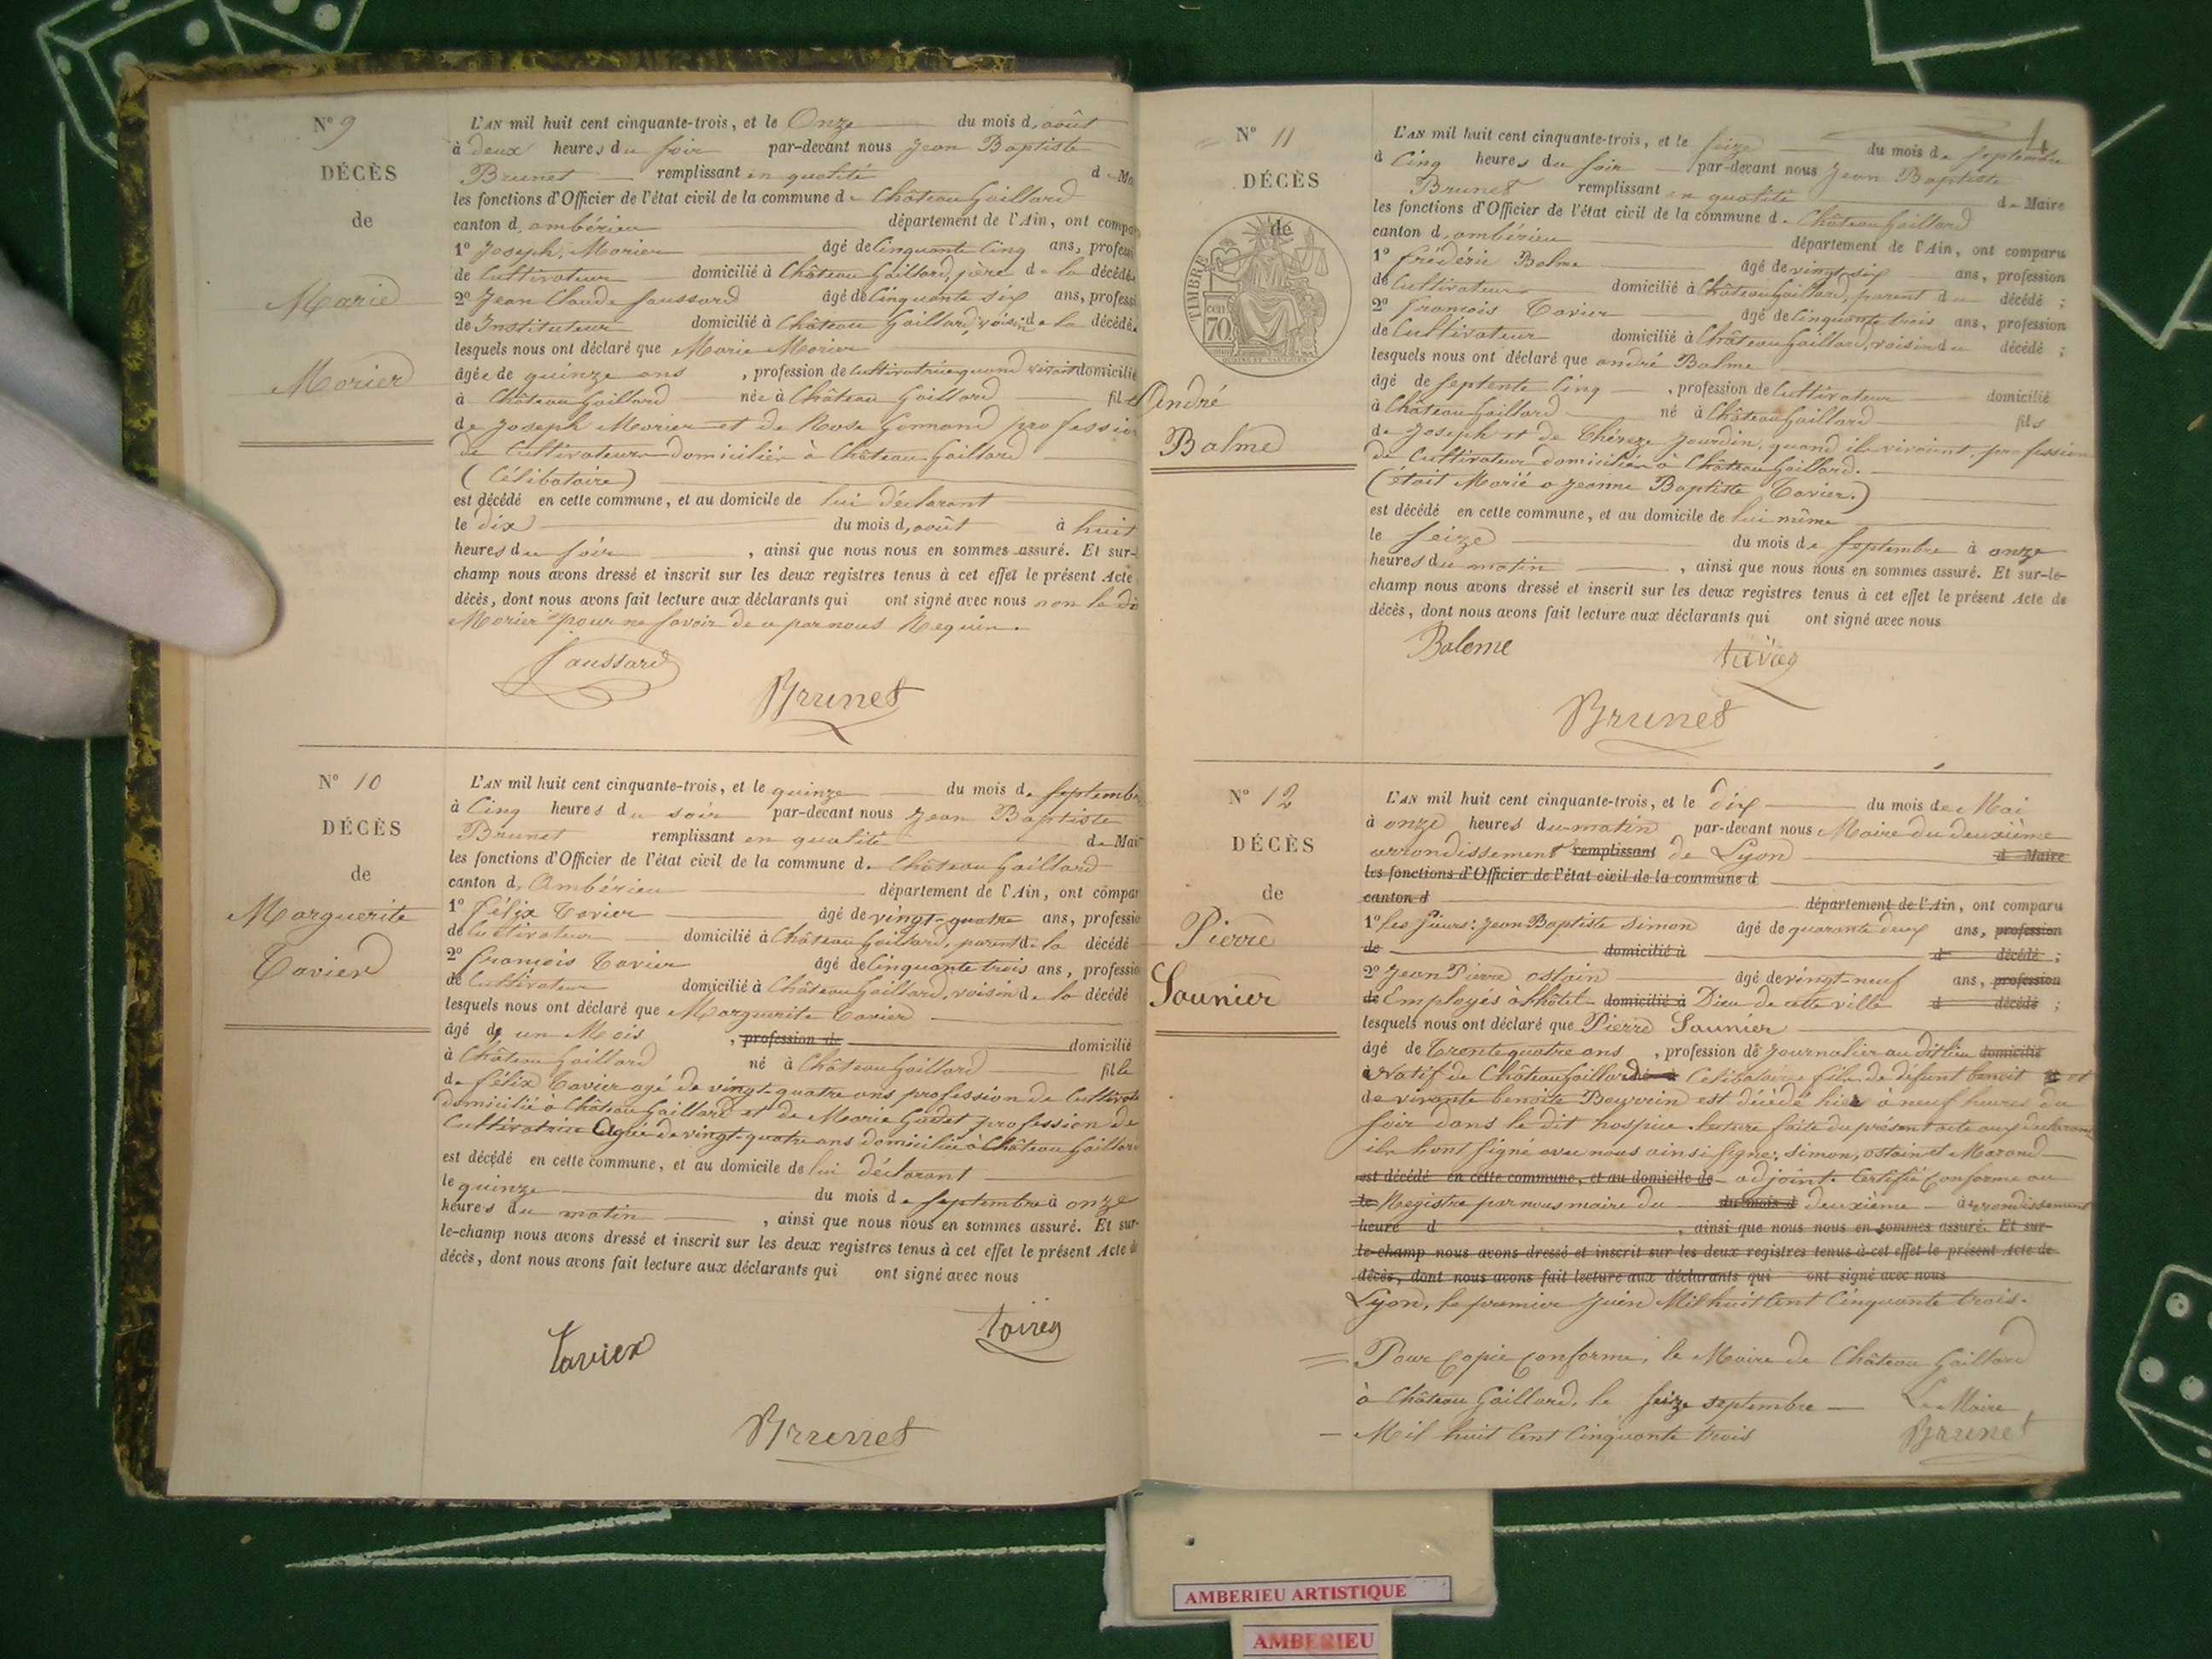 N° 9
DÉCÈS
de
Marie
Morier
L'AN mil huit cent cinquante-trois, et le Onze du mois d, août
à deux heures du soir par-devant nous Jean Baptiste
Brunet remplissant en qualité d
les fonctions d'Officier de l'état civil de la commune de Château Gaillard
canton d, ambérieu département de l'Ain, ont
1° Joseph Morier âgé de Cinquante Cinq ans,
de Cultivateur domicilié à Château Gaillard, père de la décédée
2° Jean Claude Faussard âgé de Cinquante six ans,
de Instituteur domicilié à Château Gaillard voisin de la décédée
lesquels nous ont déclaré que Marie Morier
âgée de quinze ans , profession de Cultivatrice quand vivait domicilié
à Château Gaillard née à Château Gaillard
de Joseph Morier et de Rose Gonnand
de Cultivateurs domiciliés à Château Gaillard
(Célibataire)
est décédé en cette commune, et au domicile de lui déclarant
le dix du mois d, août à huit
heures du soir , ainsi que nous nous en sommes assuré. Et sur-
champ nous avons dressé et inscrit sur les deux registres tenus à cet effet le présent Acte
décès, dont nous avons fait lecture aux déclarants qui ont signé avec nous non le
Morier pour ne savoir de ce par nous Requis.
Faussard
Brunet
N° 10
DÉCÈS
de
Marguerite
Tavier
L'AN mil huit cent cinquante-trois, et le quinze du mois de septembre
à Cinq heures du soir par-devant nous Jean Baptiste
Brunet remplissant en qualité de
les fonctions d'Officier de l'état civil de la commune de Château Gaillard
canton d, Ambérieu département de l'Ain, ont
1° félix Tavier âgé de vingt-quatre ans,
de Cultivateur domicilié à Château Gaillard, parent de la décédé
2° françois Tavier âgé de Cinquante trois ans,
de Cultivateur domicilié à Château Gaillard, voisin de la décédé
lesquels nous ont déclaré que Marguerite Tavier
âgé de un Mois , profession de domicilié
à Château Gaillard né à Château Gaillard fille
de félix Tavier agé de vingt-quatre ans profession de
domicilié à Château Gaillard et de Marie Godet profession de
Cultivatrice Agée de vingt-quatre ans domiciliée à Château Gaillard
est décédé en cette commune, et au domicile de lui déclarant
le quinze du mois de septembre à onze
heures du matin , ainsi que nous nous en sommes assuré. Et sur-
le-champ nous avons dressé et inscrit sur les deux registres tenus à cet effet le présent Acte
décès, dont nous avons fait lecture aux déclarants qui ont signé avec nous
Tavier
Brunet
4
N° 11
DÉCÈS
de
TIMBRE
70
André
Balme
L'AN mil huit cent cinquante-trois, et le seize du mois de septembre
à Cinq heures du soir par-devant nous Jean Baptiste
Brunet remplissant en qualité de Maire
les fonctions d'Officier de l'état civil de la commune d. Château Gaillard
canton d, ambérieu département de l'Ain, ont comparu
1° frédéric Balme âgé de vingt six ans, profession
de Cultivateur domicilié à Château Gaillard, parent du décédé ;
2° françois Tavier âgé de Cinquante trois ans, profession
de Cultivateur domicilié à Château Gaillard, voisin du décédé ;
lesquels nous ont déclaré que andré Balme
âgé de septente Cinq , profession de Cultivateur domicilié
à Château Gaillard né à Château Gaillard fils
de Joseph et de Thérèze Jourdin, quand ils vivaient, profession
de Cultivateur domiciliés à Château Gaillard.
(était Marié a Jeanne Baptiste Tavier.)
est décédé en cette commune, et au domicile de lui même
le seize du mois de septembre à onze
heures du matin , ainsi que nous nous en sommes assuré. Et sur-le-
champ nous avons dressé et inscrit sur les deux registres tenus à cet effet le présent Acte de
décès, dont nous avons fait lecture aux déclarants qui ont signé avec nous
Balome
Brunet
N° 12
DÉCÈS
de
Pierre
Saunier
L'AN mil huit cent cinquante-trois, et le dix du mois de Mai
à onze heures du matin par-devant nous Maire du deuxième
arrondissement remplissant de Lyon d Maire
les fonctions d'Officier de l'état civil de la commune d
canton d département de l'Ain, ont comparu
1° les Sieurs: Jean Baptiste Simon âgé de quarante deux ans, profession
de domicilié à d décédé ;
2° Jean Pierre ostain âgé de vingt-neuf ans, profession
de Employés à l'hôtel domicilié à Dieu de cette ville d décédé ;
lesquels nous ont déclaré que Pierre Saunier
âgé de Trente quatre ans , profession de Journalier au dit lieu domicilié
à Natif de Château Gaillard né à Célibataire fils de défunt benoit et
de vivante benoite Beyvrin est décédé hier a neuf heures du
soir dans le dit hospice. lecture faite du présent acte aux
ils hont signé avec nous ainsi signé: simon, ostain et Marand
est décédé en cette commune, et au domicile de adjoint. Certifié Conforme au
le Registre par nous maire du du mois d deuxième arrondissement
heure d , ainsi que nous nous en sommes assuré. Et sur-
le-champ nous avons dressé et inscrit sur les deux registres tenus à cet effet le présent Acte de
décès, dont nous avons fait lecture aux déclarants qui ont signé avec nous
Lyon, le premier Juin Mil huit Cent Cinquante trois.
Pour Copie Conforme, le Maire de Château Gaillard
à Château Gaillard, le seize septembre Le Maire
Mil huit Cent Cinquante trois Brunet
AMBERIEU ARTISTIQUE
AMBERIEU